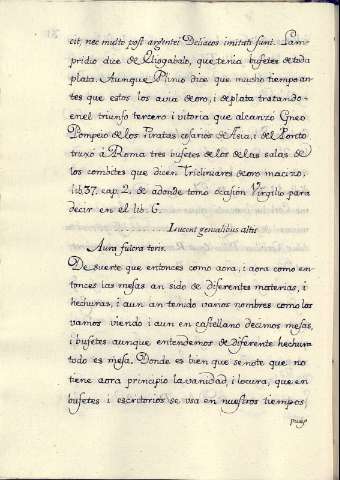 cit, nec multo post argentei Deliacos imitati sunt. Lam
pridio dice de Eliogabalo, que tenia bufetes de toda
plata. Aunque Plinio dice que mucho tiempo an-
tes que estos los avia de oro, i de plata tratando-
en el triunfo tercero i vitoria que alcanzó Gneo
Pompeio de los Piratas cosarios de Asia, i del Ponto
truxo à Roma tres bufetes de los de las salas de
los combites que dicen Tricliniares de oro macizo,
lib. 37. cap. 2, de adonde tomo ocasion Virgilio para
decir en el lib. 6.
Lucent genialibus altis
Aurea fulcra toris.
De suerte que entonces como aora, i aora como en-
tonces las mesas an sido de diferentes materias, i
hechuras, i aun an tenido varios nombres como los
vamos viendo i aun en castellano decimos mesas,
i bufetes aunque entendemos de diferente hechura
todo es mesa. Donde es bien que se note que no
tiene aora principio la vanidad, i locura, que en
bufetes i escritorios se usa en nuestros tiempos
pues